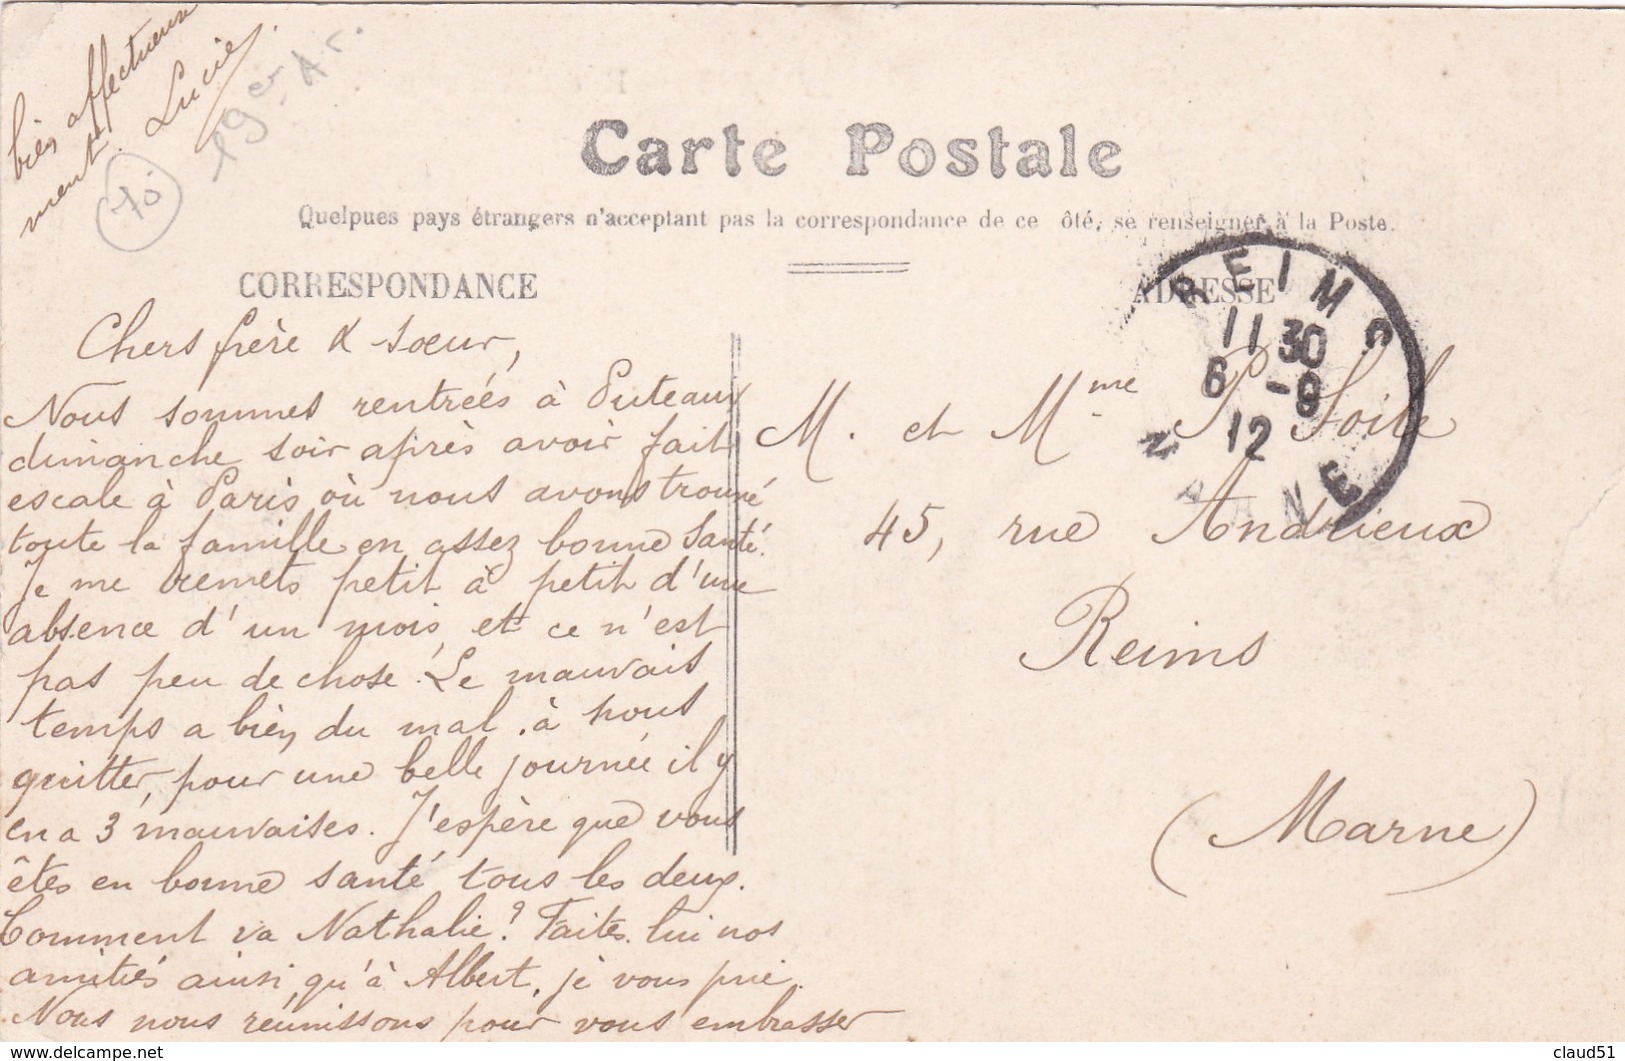 bien affectueuse
ment. Lucie.
19er Ar.
70
Carte Postale
Quelques pays étrangers n'acceptent pas la correspondance de ce ôté, se renseigner à la Poste.
CORRESPONDANCE
ADRESSE
REIMS
11 30
6 -9
12
MARNE
Chers frère & soeur,
Nous sommes rentrées à Puteaux
dimanche soir après avoir fait
escale à Paris où nous avons trouvé
toute la famille en assez bonne santé.
Je me remets petit à petit d'une
absence d'un mois, et ce n'est
pas peu de chose. Le mauvais
temps a bien du mal à nous
quitter, pour une belle journée il y
en a 3 mauvaises. J'espère que vous
êtes en bonne santé tous les deux.
Comment va Nathalie? Faites lui nos
amitiés ainsi qu'à Albert, je vous prie.
Nous nous réunissons pour vous embrasser
M. et Mme P. Soile
45, rue Andrieux
Reims
(Marne)
claud51
delcampe.net